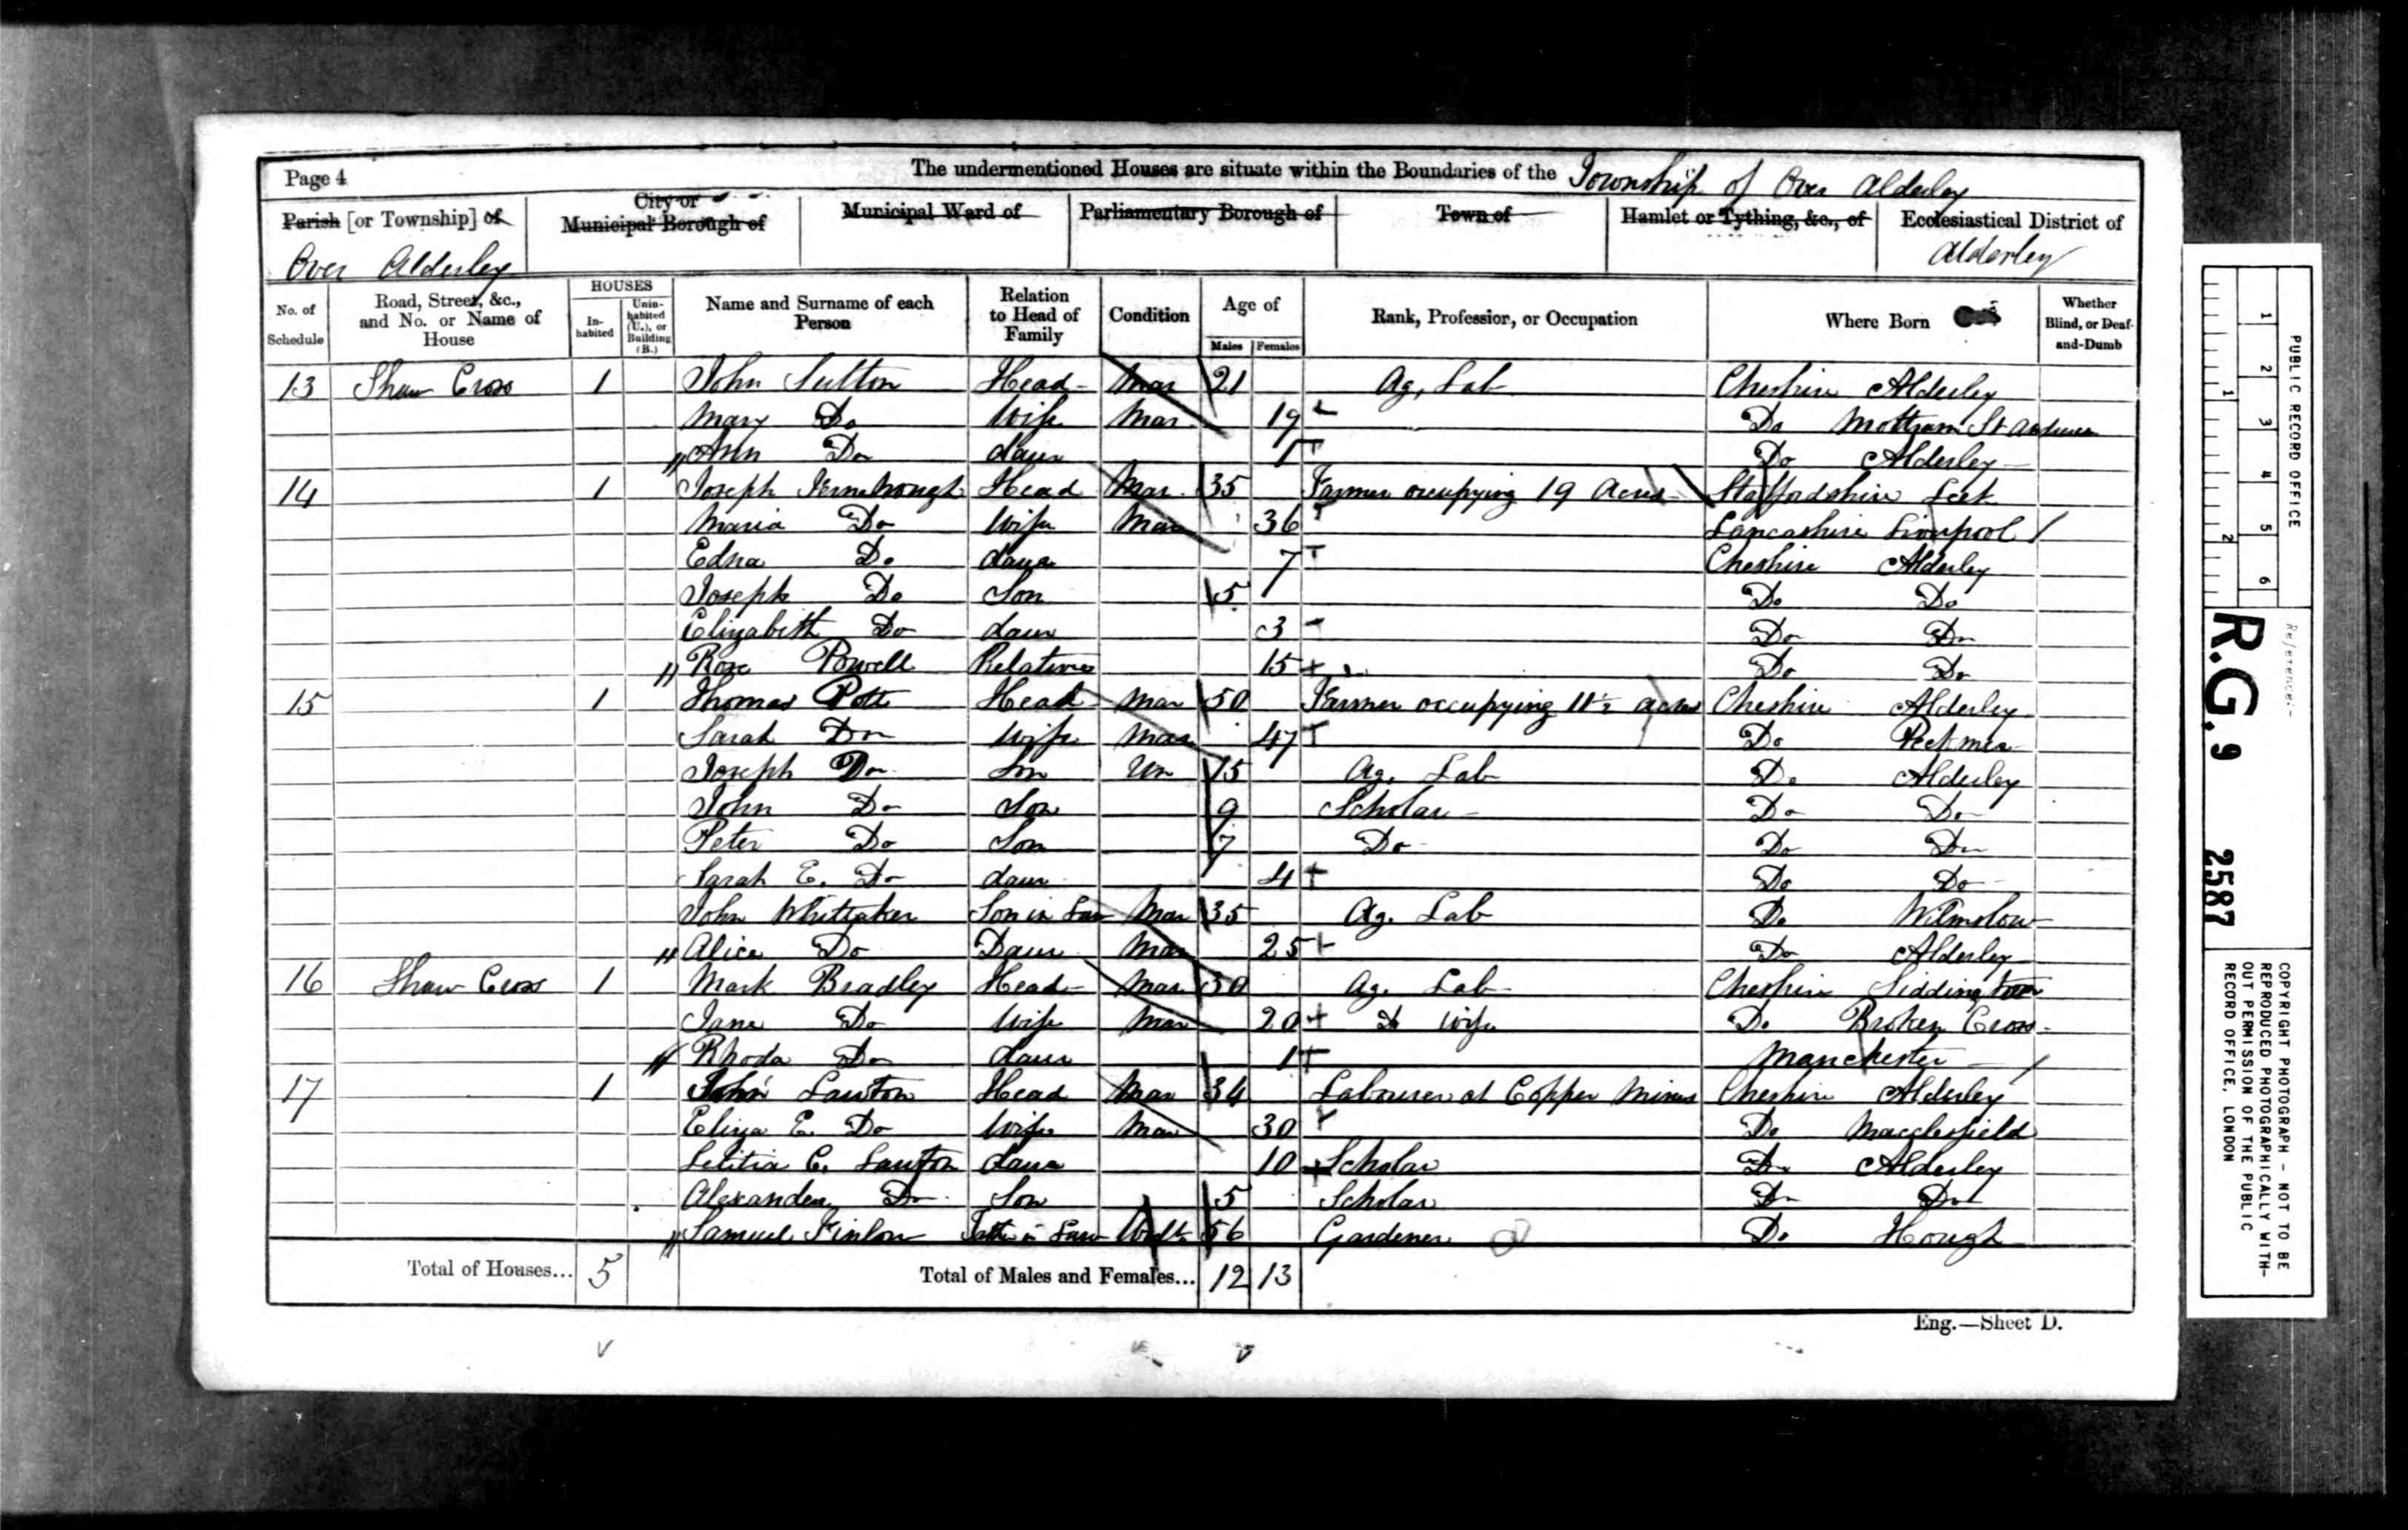 Page 4
The undermentioned Houses are situate within the Boundaries of the Township of Over Alderley
Parish [or Township] of Over Alderley
City or Municipal Borough of
Municipal Ward of
Parliamentary Borough of
Town of
Hamlet or Tything, &c., of
Ecclesiastical District of Alderley
No. of Schedule
Road, Street, &c., and No. or Name of House
HOUSES
In-habited
Unin-habited (U.), or Building (B.)
Name and Surname of each Person
Relation to Head of Family
Condition
Age of
Males
Females
Rank, Profession, or Occupation
Where Born
Whether Blind, or Deaf-and-Dumb
13 Shaw Cross 1 John Sutton Head Mar 21 Ag, Lab Cheshire Alderley
Mary Do Wife Mar 19 Do Mottram St Andrew
Ann Do daur 1 Do Alderley
14 1 Joseph Head Mar 35 Farmer occupying 19 Acres Staffordshire Leek
Maria Do Wife Mar 36 Lancashire Liverpool
Edna Do daur 7 Cheshire Alderley
Joseph Do Son 5 Do Do
Elizabeth Do daur 3 Do Do
Rose Powell Relative 15 Do Do
15 1 Thomas Pott Head Mar 50 Farmer occupying 11½ acres Cheshire Alderley
Sarah Do Wife Mar 47 Do
Joseph Do Son Un 15 Ag. Lab Do Alderley
John Do Son 9 Scholar Do Do
Peter Do Son 7 Do Do Do
Sarah E. Do daur 4 Do Do
John Whittaker Son in Law Mar 35 Ag. Lab Do Wilmslow
Alice Do Daur Mar 25 Do Alderley
16 Shaw Cross 1 Mark Bradley Head Mar 30 Ag. Lab Cheshire Siddington
Jane Do Wife Mar 20 Do Wife Do Broken Cross
Rhoda Do daur 1 Manchester
17 1 John Lawton Head Mar 34 Labourer at Copper Mines Cheshire Alderley
Eliza E. Do Wife Mar 30 Do Macclesfield
Letitia C. Lawton daur 10 Scholar Do Alderley
Alexander Do Son 5 Scholar Do Do
Samuel Finlow Father in Law Widr 56 Gardener Do Hough
Total of Houses... 5
Total of Males and Females... 12 13
Eng.—Sheet D.
PUBLIC RECORD OFFICE
1 2 3 4 5 6
1 2
Reference:-
R.G. 9 2587
COPYRIGHT PHOTOGRAPH - NOT TO BE
REPRODUCED PHOTOGRAPHICALLY WITH-
OUT PERMISSION OF THE PUBLIC
RECORD OFFICE, LONDON